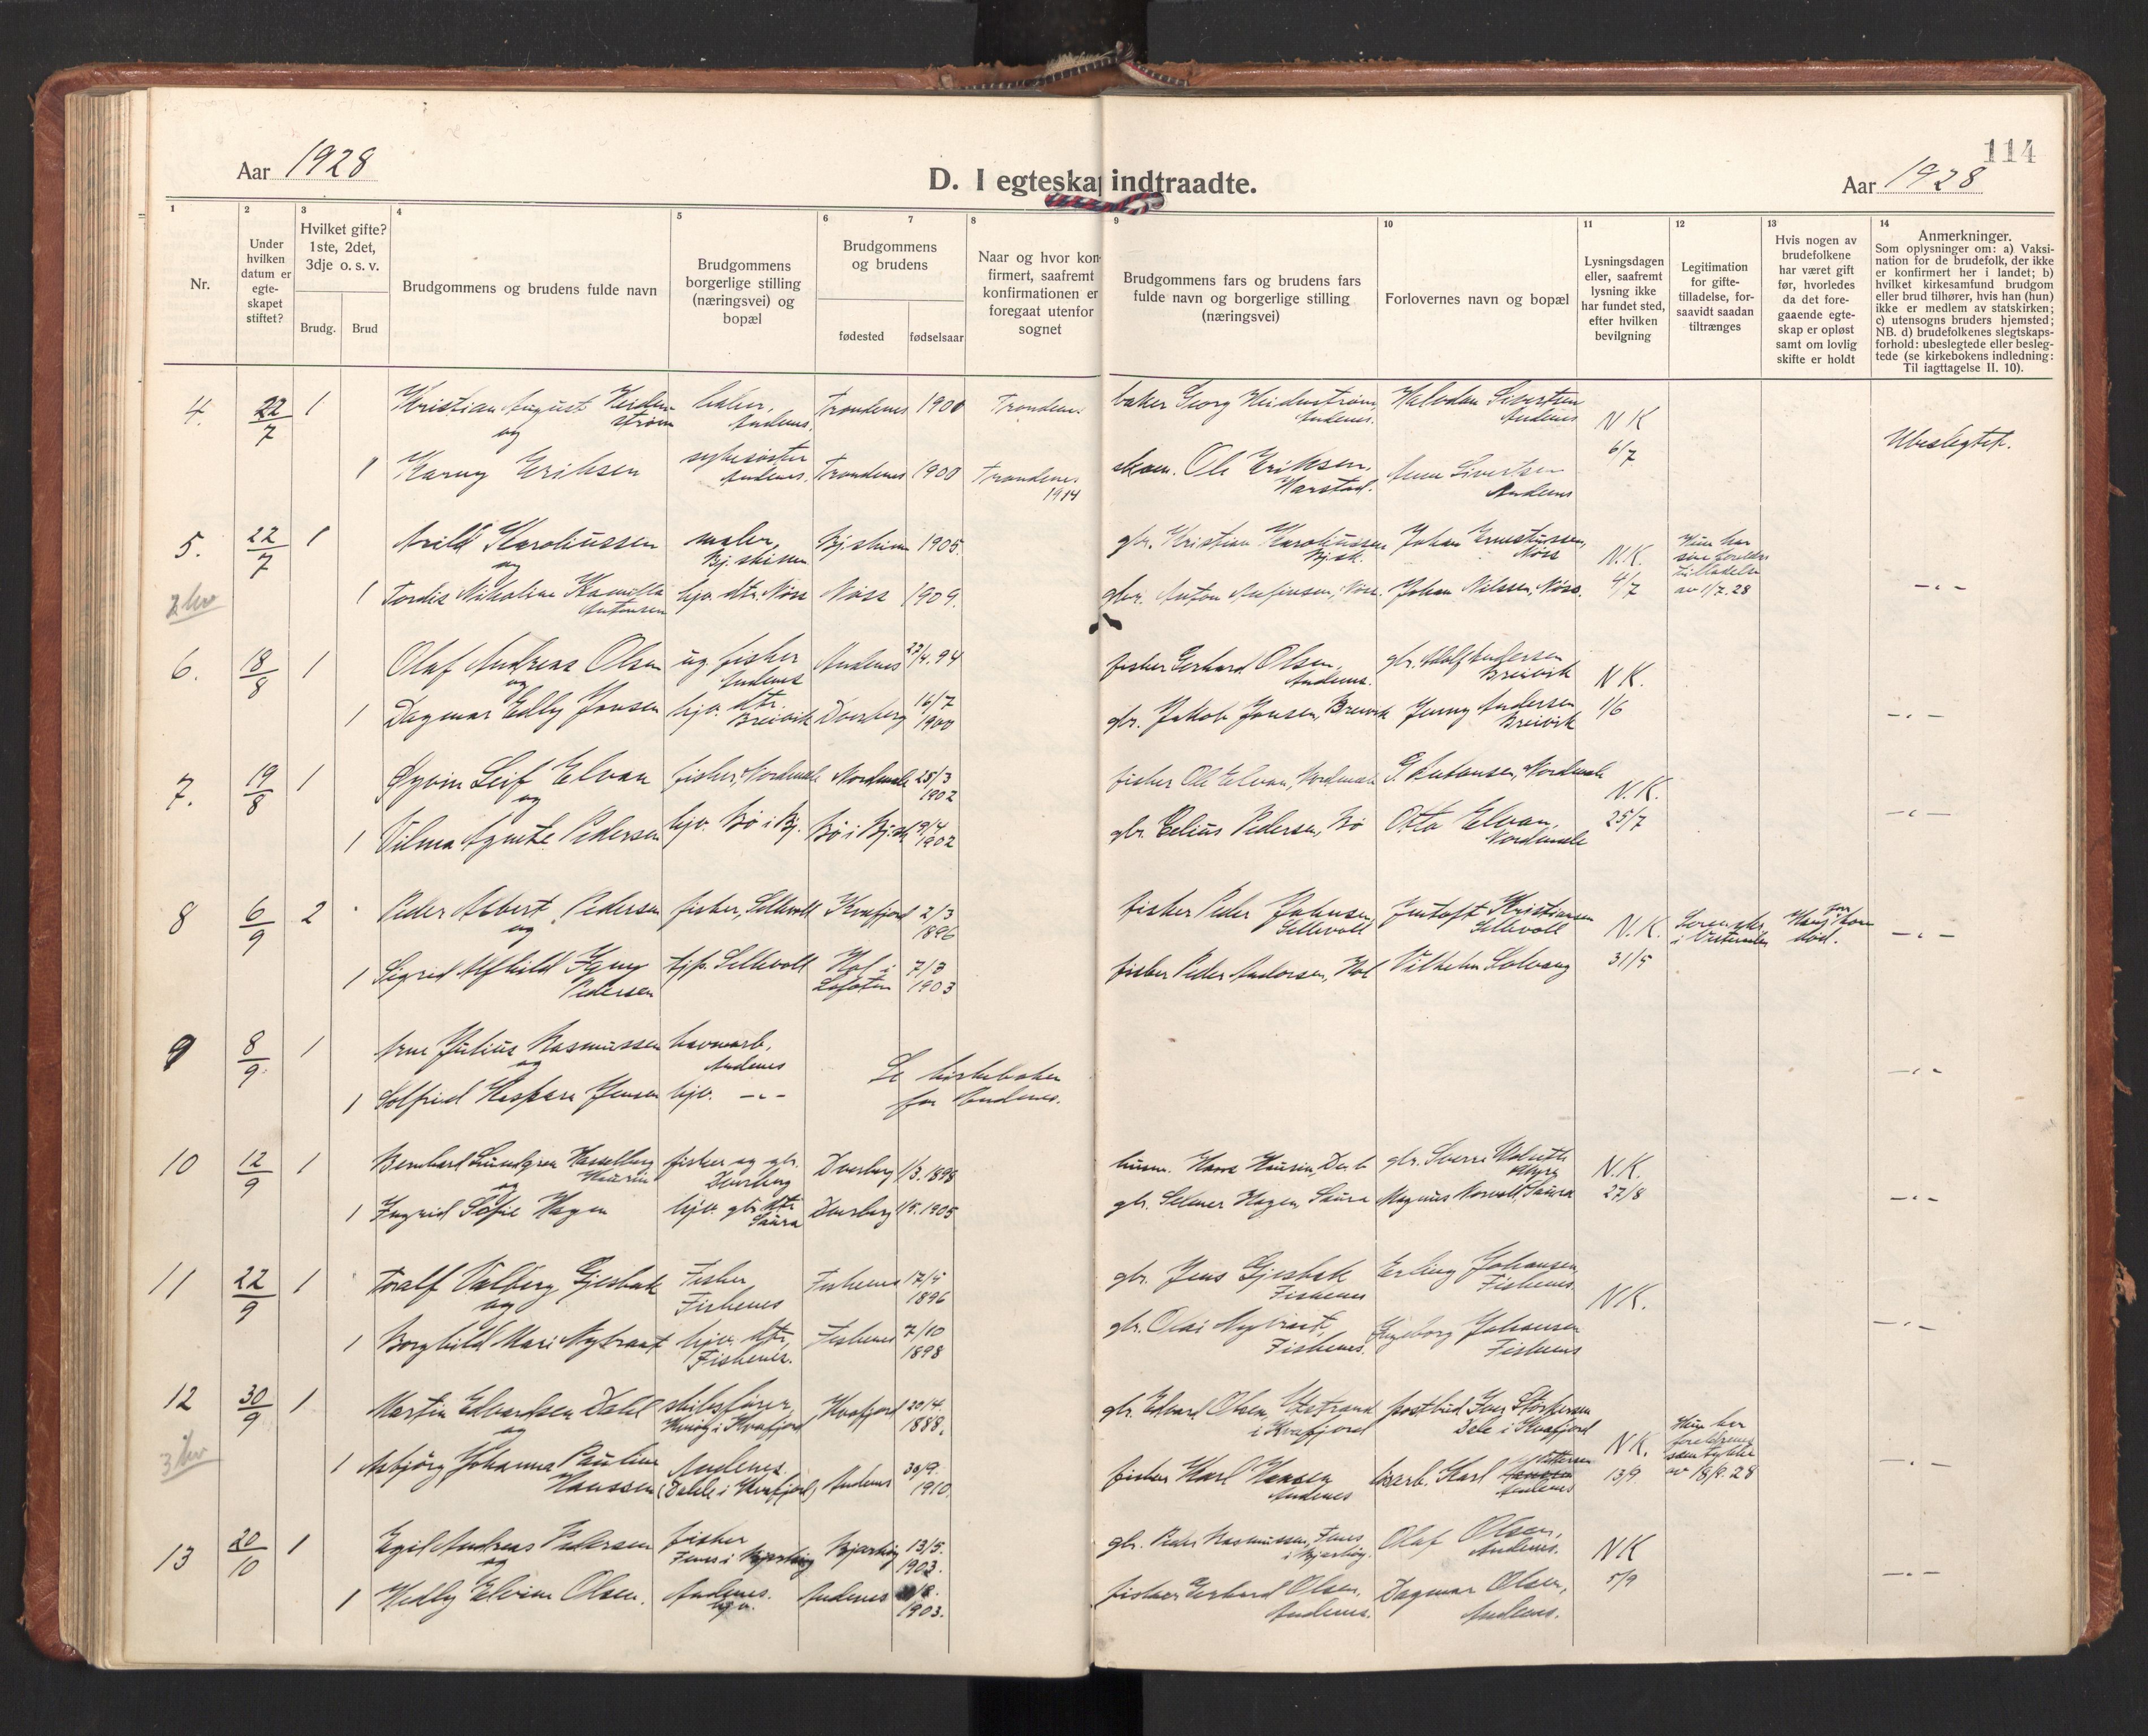 114
Aar 1928
D. I egteskap indtraadte.
Aar 1928
1
2
3
4
5
6
7
8
9
10
11
12
13
14
Nr.
Under hvilken datum er egte-skapet stiftet?
Hvilket gifte? 1ste, 2det, 3dje o. s. v.
Brudg.
Brud
Brudgommens og brudens fulde navn
Brudgommens borgerlige stilling (næringsvei) og bopæl
Brudgommens og brudens
fødested
fødselsaar
Naar og hvor kon-firmert, saafremt konfirmationen er foregaat utenfor sognet
Brudgommens fars og brudens fars fulde navn og borgerlige stilling (næringsvei)
Forlovernes navn og bopæl
Lysningsdagen eller, saafremt lysning ikke har fundet sted, efter hvilken bevilgning
Legitimation for gifte-tilladelse, for-saavidt saadan tiltrænges
Hvis nogen av brudefolkene har været gift før, hvorledes da det fore-gaaende egte-skap er opløst samt om lovlig skifte er holdt
Anmerkninger.
Som oplysninger om: a) Vaksi-nation for de brudefolk, der ikke er konfirmert her i landet; b) hvilket kirkesamfund brudgom eller brud tilhører, hvis han (hun) ikke er medlem av statskirken; c) utensogns bruders hjemsted; NB. d) brudefolkenes slegtskaps-forhold: ubeslegtede eller besleg-tede (se kirkebokens indledning: Til iagttagelse II. 10).
4. 22/7 1 Kristian August Heidenstrøm baker, Andenes. Trondenes 1900 Trondenes baker Georg Heidenstrøm, Andenes. Halvdan Sivertsen Andenes N K 6/7 Ubeslegtet.
og
1 Karny Eriksen sykesøster Andenes. Trondenes 1900 Trondenes 1914 Ole Eriksen, Harstad. Sivertsen Andenes
5. 22/7 1 Arild Karoliussen maler, Bj. skinn 1905. gbr. Kristian Karoliussen Bjsk. Johan Ernestussen, Nöss N.K. 4/7 Hun har sine foreldres tilladelse av 1/7.28
og
1 Tordis Nikoline Kamilla Antonsen hjv. dtr. Nöss Nöss 1909. gbr. Anton Nöss. Johan Nilssen, Nöss. -"-
6. 18/8 1 Olaf Andreas Olsen ug. fisker Andenes Andenes 27/4.94 fisker Gerhard Olsen, Andenes. gbr. Adolf Andersen Breivik N K. 1/6
og
1 Dagmar Edly Jonsen hjv. dtr. Breivik Dverberg 16/7 1900 gbr. Jakob Jonsen, Breivik Jenny Andersen Breivik -"-
7. 19/8 1 Øyvin Leif Elvan fisker, Nordmele Nordmele 25/3 1902 fisker Ole Elvan, Nordmele Nordmele N.K. 25/7
og
1 Vilma Agnete Pedersen hjv. Bö i Bj. Bö i Bjsk 19/4 1902 gbr. Pedersen, Bö Otto Elvan, Nordmele -"-
8 6/9 2 Peder Albert Pedersen fisker, Sellevoll Kvæfjord 2/3 1896 fisker Peder Johnsen, Sellevoll Gustaft Kristiansen Sellevoll N.K. 31/5 i Vesterålen Hans før. kone död. -"-
og
1 Sigrid Alfhild Jenny Pedersen tjp. Sellevoll Hol i Lofoten 7/3 1903 fisker Peder Andorsen, Hol Vilhelm Solvang
9 8/9. 1 Arne Julius Rasmussen havnearb, Andenes
og
Se kirkeboken for Andenes.
1 Solfrid Kaspara Jensen hjv. -"- -"-
10 12/9 1 Bernhard Lundgren Hasselberg fisker og gbr. Dverberg Dverberg 1/3.1898 N.K. 27/8
og
1 Ingrid Sofie Hagen hjv. gbr. dtr Saura Dverberg 1905 gbr. Selmer Hagen, Saura Magnus Saura -"-
11 22/9 1 Toralf Valberg Gjesbak Fisker Fiskenes Fiskenes 17/5 1896 gbr. Jens Gjesbak Fiskenes Erling Johansen, Fiskenes. N K.
og
1 Borghild Mari Nybraat hjv. dtr, Fiskenes. Fiskenes 7/10 1898 gbr. Olai Nybraat, Fiskenes. Ingeborg Johansen Fiskenes -"-
12 30/9 1 Martin Edvardsen Dahl skibsfører, i Kvæfjord Kvæfjord 20/4. 1888. gbr. Edvard Olsen, i Kvæfjord postbud i Kvæfjord N K. 13/9 Hun har foreldrenes samtykke av 18/9. 28
og
3
1 Asbjörg Johanna Pauline Hanssen Andenes. i Kvæfjord) Andenes 30/9. 1910. fisker Karl Hansen Andenes Karl Andenes -"-
13 20/10 1 Egil Andreas Pedersen fisker Bjarköy 13/5. 1903. gbr. Peder Rasmussen, i Bjarköy. Olaf Olsen, Andenes. N K 5/9
og
1 Hedly Elvine Olsen. Andenes. hjv. Andenes 1903. fisker Gerhard Olsen, Andenes. Dagmar Olsen, Andenes. -"-